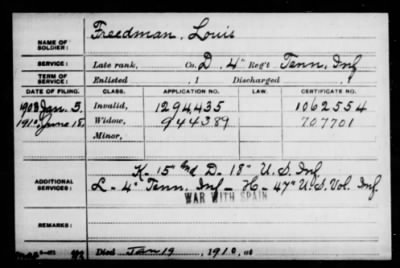 NAME OF SOLDIER: Freedman, Louis
SERVICE: Late rank, Co. D, 4" Reg't Tenn. Inf
TERM OF SERVICE: Enlisted , 1 Discharged , 1
DATE OF FILING. CLASS. APPLICATION NO. LAW. CERTIFICATE NO.
1903 Jan. 5, Invalid, 1294,435 1062554
1910 June 18, Widow, 944389 707701
Minor,
ADDITIONAL SERVICES: K- 15" and D- 18" U.S. Inf
L- 4" Tenn. Inf - H- 47" U.S. Vol. Inf
WAR WITH SPAIN
REMARKS:
Died Jan 19, 1910, at